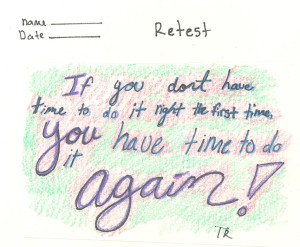 name
Date
Retest
If you don't have
time to do it right the first time,
you have time to do
it
again!
TR